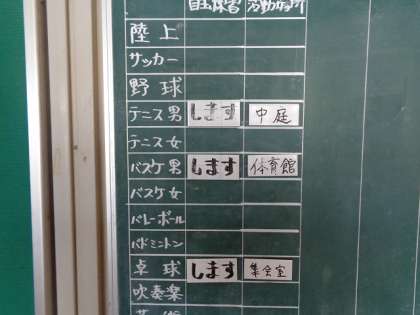 自主練習 活動場所
陸上
サッカー
野球
テニス男 します 中庭
テニス女
バスケ男 します 体育館
バスケ女
バレーボール
バドミントン
卓球 します 集会室
吹奏楽